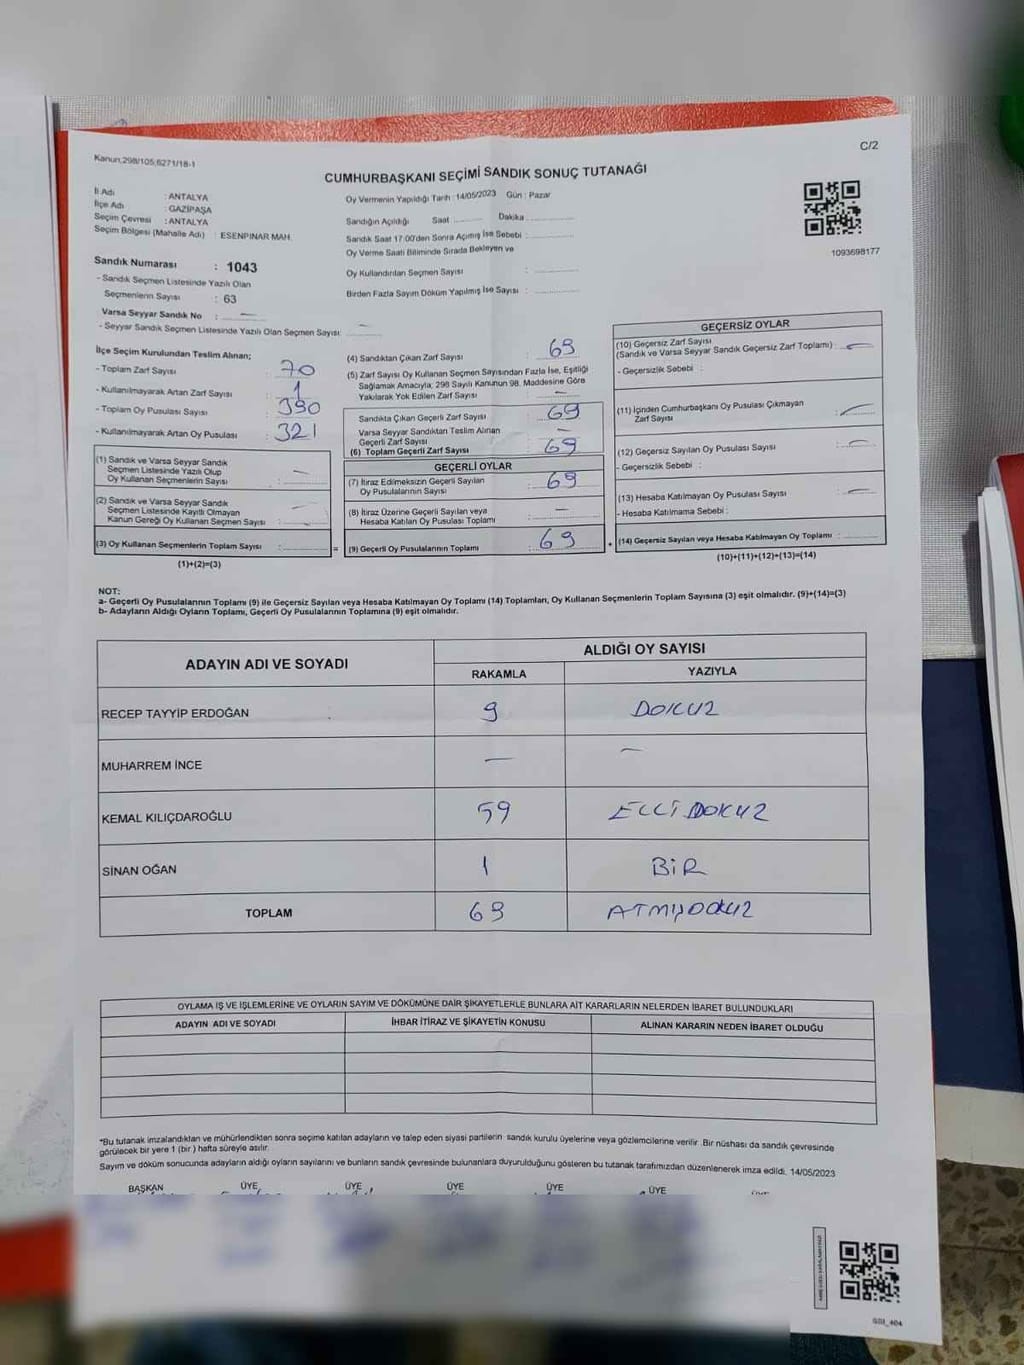 C/2
Kanun,298/105;6271/18-1
CUMHURBAŞKANI SEÇİMİ SANDIK SONUÇ TUTANAĞI
İl Adı : ANTALYA
İlçe Adı : GAZİPAŞA
Seçim Çevresi : ANTALYA
Seçim Bölgesi (Mahalle Adı) : ESENPINAR MAH.
Sandık Numarası : 1043
- Sandık Seçmen Listesinde Yazılı Olan
Seçmenlerin Sayısı : 63
Varsa Seyyar Sandık No : —
- Seyyar Sandık Seçmen Listesinde Yazılı Olan Seçmen Sayısı: —
Oy Vermenin Yapıldığı Tarih : 14/05/2023 Gün : Pazar
Sandığın Açıldığı Saat ............ Dakika ............
Sandık Saat 17:00'den Sonra Açılmış İse Sebebi : ............
Oy Verme Saati Bitiminde Sırada Bekleyen ve
Oy Kullandırılan Seçmen Sayısı : ............
Birden Fazla Sayım Döküm Yapılmış İse Sayısı : ............
1093698177
İlçe Seçim Kurulundan Teslim Alınan;
- Toplam Zarf Sayısı : 70
- Kullanılmayarak Artan Zarf Sayısı : 1
- Toplam Oy Pusulası Sayısı : 390
- Kullanılmayarak Artan Oy Pusulası : 321
(1) Sandık ve Varsa Seyyar Sandık
Seçmen Listesinde Yazılı Olup
Oy Kullanan Seçmenlerin Sayısı : —
(2) Sandık ve Varsa Seyyar Sandık
Seçmen Listesinde Kayıtlı Olmayan
Kanun Gereği Oy Kullanan Seçmen Sayısı : —
(3) Oy Kullanan Seçmenlerin Toplam Sayısı : ............ =
(1)+(2)=(3)
(4) Sandıktan Çıkan Zarf Sayısı : 69
(5) Zarf Sayısı Oy Kullanan Seçmen Sayısından Fazla İse, Eşitliği
Sağlamak Amacıyla; 298 Sayılı Kanunun 98. Maddesine Göre
Yakılarak Yok Edilen Zarf Sayısı : —
Sandıkta Çıkan Geçerli Zarf Sayısı : 69
Varsa Seyyar Sandıktan Teslim Alınan
Geçerli Zarf Sayısı : —
(6) Toplam Geçerli Zarf Sayısı : 69
GEÇERLİ OYLAR
(7) İtiraz Edilmeksizin Geçerli Sayılan
Oy Pusulalarının Sayısı : 69
(8) İtiraz Üzerine Geçerli Sayılan veya
Hesaba Katılan Oy Pusulası Toplamı : —
(9) Geçerli Oy Pusulalarının Toplamı : 69 +
GEÇERSİZ OYLAR
(10) Geçersiz Zarf Sayısı
(Sandık ve Varsa Seyyar Sandık Geçersiz Zarf Toplamı) : —
- Geçersizlik Sebebi :
(11) İçinden Cumhurbaşkanı Oy Pusulası Çıkmayan
Zarf Sayısı : —
(12) Geçersiz Sayılan Oy Pusulası Sayısı : —
- Geçersizlik Sebebi :
(13) Hesaba Katılmayan Oy Pusulası Sayısı : —
- Hesaba Katılmama Sebebi :
(14) Geçersiz Sayılan veya Hesaba Katılmayan Oy Toplamı : ............
(10)+(11)+(12)+(13)=(14)
NOT:
a- Geçerli Oy Pusulalarının Toplamı (9) ile Geçersiz Sayılan veya Hesaba Katılmayan Oy Toplamı (14) Toplamları, Oy Kullanan Seçmenlerin Toplam Sayısına (3) eşit olmalıdır. (9)+(14)=(3)
b- Adayların Aldığı Oyların Toplamı, Geçerli Oy Pusulalarının Toplamına (9) eşit olmalıdır.
ADAYIN ADI VE SOYADI
ALDIĞI OY SAYISI
RAKAMLA YAZIYLA
RECEP TAYYİP ERDOĞAN 9 DOKUZ
MUHARREM İNCE — —
KEMAL KILIÇDAROĞLU 59 ELLİDOKUZ
SİNAN OĞAN 1 BİR
TOPLAM 69 ATMIŞDOKUZ
OYLAMA İŞ VE İŞLEMLERİNE VE OYLARIN SAYIM VE DÖKÜMÜNE DAİR ŞİKAYETLERLE BUNLARA AİT KARARLARIN NELERDEN İBARET BULUNDUKLARI
ADAYIN ADI VE SOYADI İHBAR İTİRAZ VE ŞİKAYETİN KONUSU ALINAN KARARIN NEDEN İBARET OLDUĞU
*Bu tutanak imzalandıktan ve mühürlendikten sonra seçime katılan adayların ve talep eden siyasi partilerin sandık kurulu üyelerine veya gözlemcilerine verilir. Bir nüshası da sandık çevresinde
görülecek bir yere 1 (bir ) hafta süreyle asılır.
Sayım ve döküm sonucunda adayların aldığı oyların sayılarını ve bunların sandık çevresinde bulunanlara duyurulduğunu gösteren bu tutanak tarafımızdan düzenlenerek imza edildi. 14/05/2023
BAŞKAN ÜYE ÜYE ÜYE ÜYE ÜYE